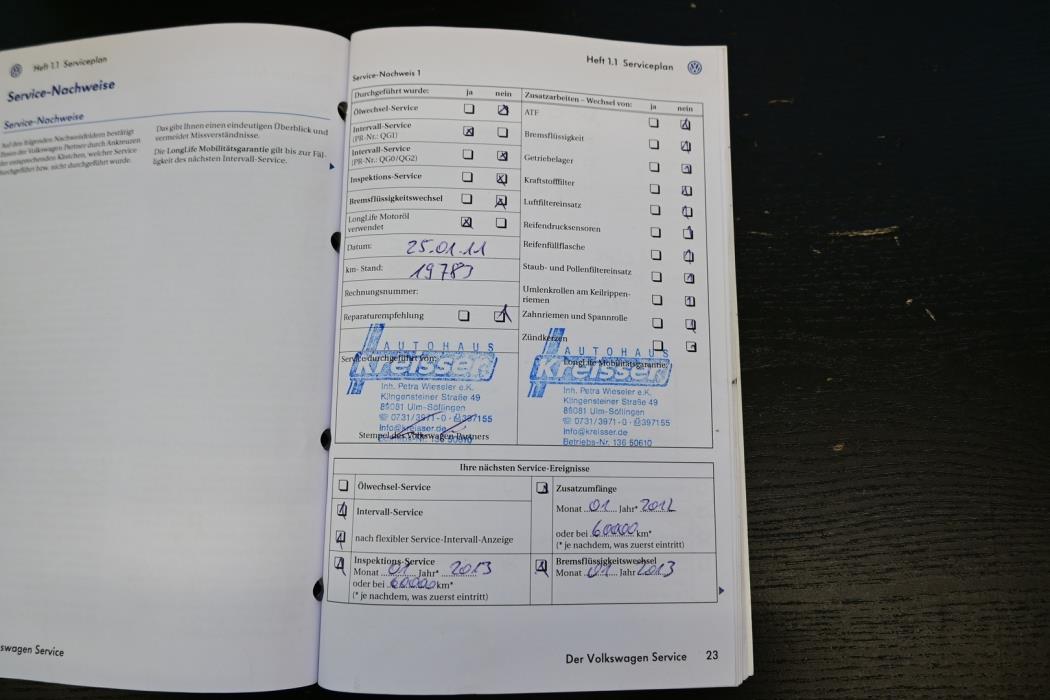 Heft 1.1 Serviceplan
Service-Nachweise
Service-Nachweise
Auf den folgenden Nachweisfeldern bestätigt
Ihnen der Volkswagen Partner durch Ankreuzen
der entsprechenden Kästchen, welcher Service
durchgeführt bzw. nicht durchgeführt wurde.
Das gibt Ihnen einen eindeutigen Überblick und
vermeidet Missverständnisse.
Die LongLife Mobilitätsgarantie gilt bis zur Fäl-
ligkeit des nächsten Intervall-Service.
swagen Service
Heft 1.1 Serviceplan
Service-Nachweis 1
Durchgeführt wurde: ja nein
Ölwechsel-Service
Intervall-Service
(PR-Nr.: QG1)
Intervall-Service
(PR-Nr.: QG0/QG2)
Inspektions-Service
Bremsflüssigkeitswechsel
LongLife Motoröl
verwendet
Datum: 25.01.11
km-Stand: 19783
Rechnungsnummer:
Reparaturempfehlung
Service durchgeführt von:
AUTOHAUS
Kreisser
Inh. Petra Wieseler e.K.
Klingensteiner Straße 49
89081 Ulm-Söflingen
☎ 0731/3971-0 · 397155
Info@kreisser.de
Betriebs-Nr. 136 50610
Stempel des Volkswagen Partners
Zusatzarbeiten – Wechsel von: ja nein
ATF
Bremsflüssigkeit
Getriebelager
Kraftstofffilter
Luftfiltereinsatz
Reifendrucksensoren
Reifenfüllflasche
Staub- und Pollenfiltereinsatz
Umlenkrollen am Keilrippen-
riemen
Zahnriemen und Spannrolle
Zündkerzen
AUTOHAUS
LongLife Mobilitätsgarantie:
Kreisser
Inh. Petra Wieseler e.K.
Klingensteiner Straße 49
89081 Ulm-Söflingen
☎ 0731/3971-0 · 397155
Info@kreisser.de
Betriebs-Nr. 136 50610
Ihre nächsten Service-Ereignisse
Ölwechsel-Service
Intervall-Service
nach flexibler Service-Intervall-Anzeige
Inspektions-Service
Monat 01 Jahr* 2013
oder bei 60000 km*
(* je nachdem, was zuerst eintritt)
Zusatzumfänge
Monat 01 Jahr* 2012
oder bei 60000 km*
(* je nachdem, was zuerst eintritt)
Bremsflüssigkeitswechsel
Monat 01 Jahr 2013
Der Volkswagen Service 23